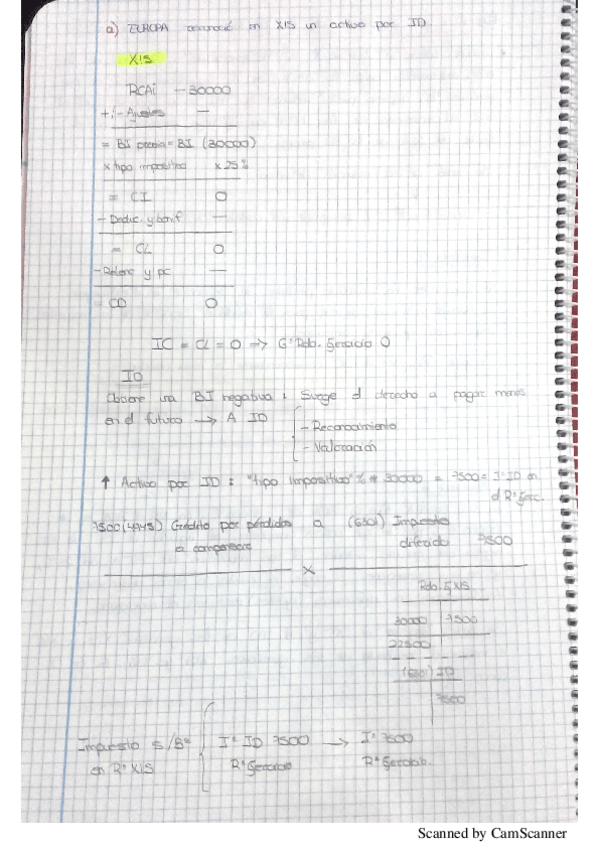 a) EUROPA en XIS un activo por ID
XIS
RCAi - 30000
+/- Ajustes —
= BI previa = BI (30000)
x tipo impositivo x 25%
= CI 0
- Deduc. y bonif —
= CL 0
- Retenc y pc —
= CD 0
IC = CL = 0 → Gº Rdo. Ejercicio 0
ID
Obtiene una BI negativa : Surge el derecho a pagar menos
en el futuro → A ID
- Reconocimiento
- Valoración
↑ Activo por ID : "tipo impositivo" % * 30000 = 7500 = Iº ID en
el Rº Ejerc.
7500 (4745) Crédito por pérdidas a (6301) Impuesto
a compensar diferido 7500
x
Rdo. Ej XIS
30000 7500
22500
(6301) ID
7500
Impuesto s/Bº Iº ID 7500 → Iº 7500
en Rº XIS Rº Rº
Scanned by CamScanner